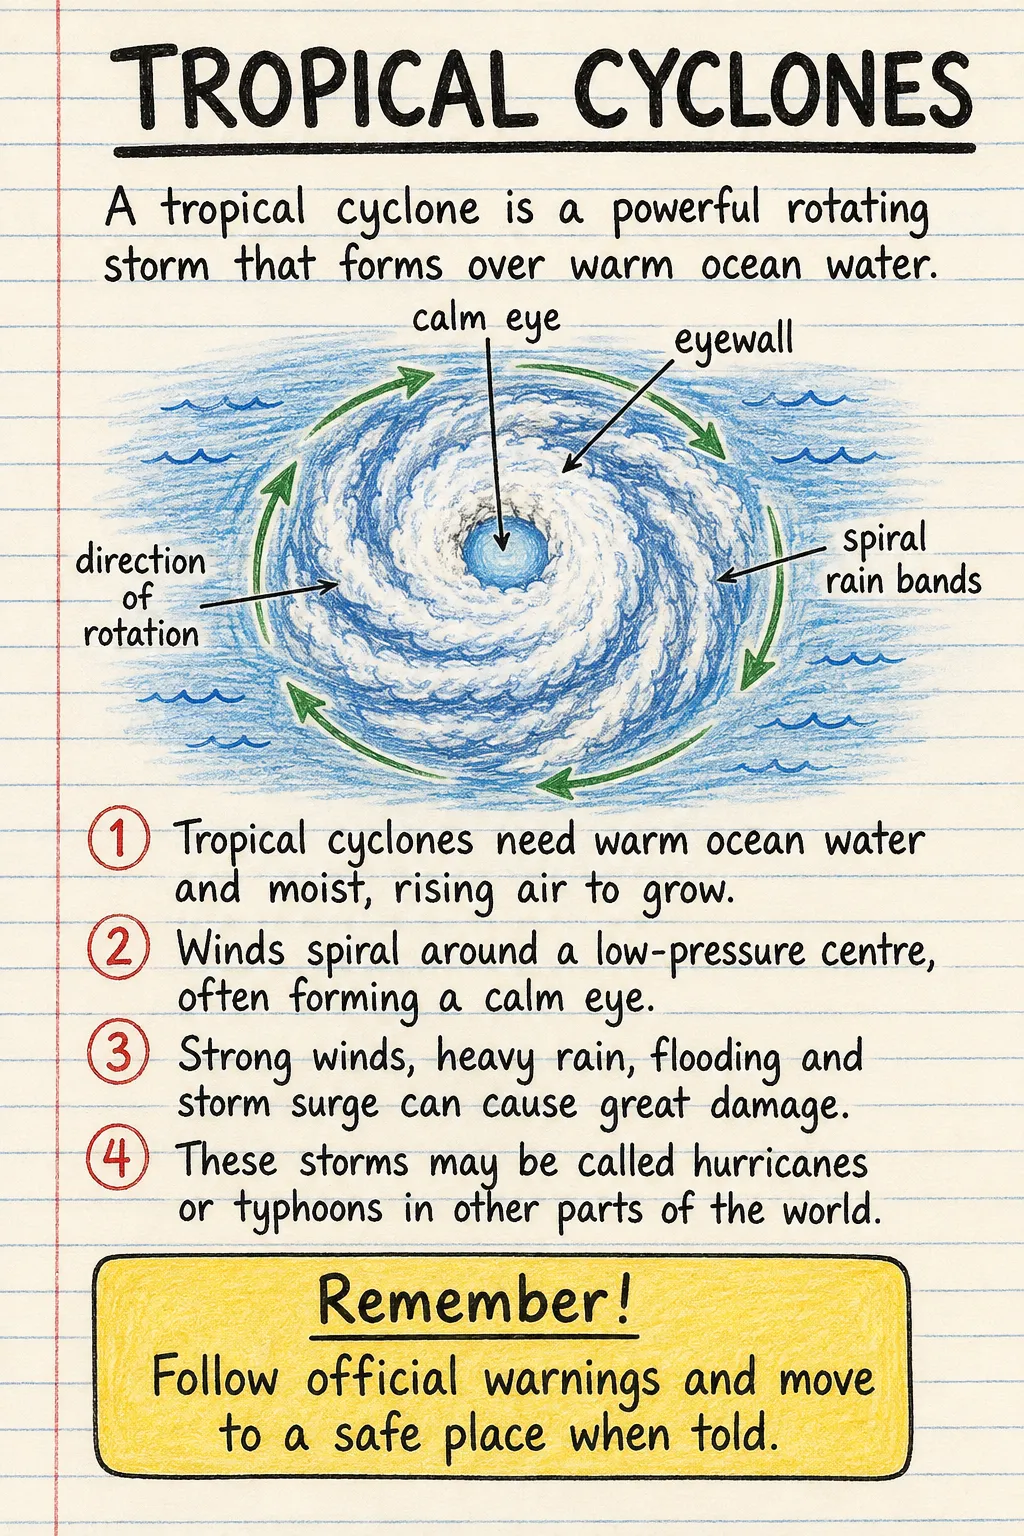 TROPICAL CYCLONES
A tropical cyclone is a powerful rotating
storm that forms over warm ocean water.
calm eye
eyewall
direction
of
rotation
spiral
rain bands
1 Tropical cyclones need warm ocean water
and moist, rising air to grow.
2 Winds spiral around a low-pressure centre,
often forming a calm eye.
3 Strong winds, heavy rain, flooding and
storm surge can cause great damage.
4 These storms may be called hurricanes
or typhoons in other parts of the world.
Remember!
Follow official warnings and move
to a safe place when told.